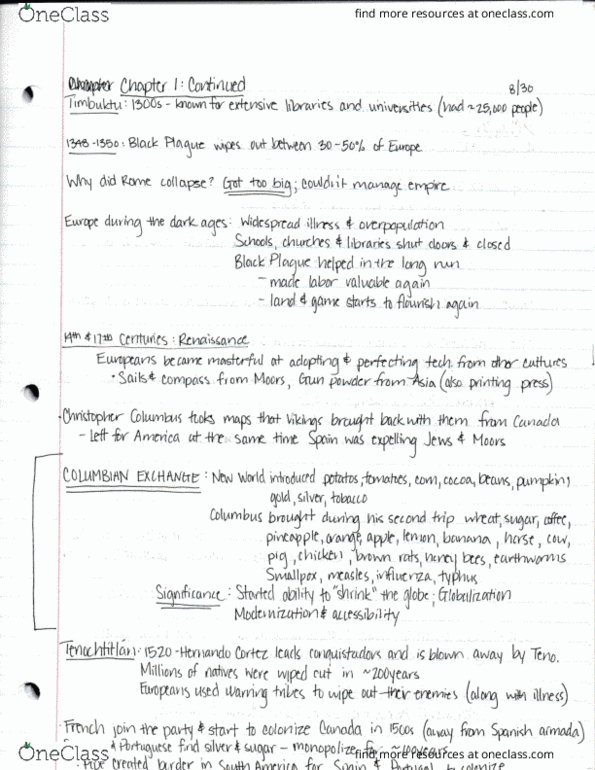 OneClass
find more resources at oneclass.com
Chapter 1: Continued
8/30
Timbuktu: 1300s - known for extensive libraries and universities (had ≈ 25,000 people)
1348-1350: Black Plague wipes out between 30-50% of Europe
Why did Rome collapse? Got too big; couldn't manage empire
Europe during the dark ages: Widespread illness & overpopulation
Schools, churches & libraries shut doors & closed
Black Plaque helped in the long run
- made labor valuable again
- land & game starts to flourish again
14th & 17th Centuries: Renaissance
Europeans became masterful at adopting & perfecting tech from other cultures
• Sails & compass from Moors, Gun powder from Asia (also printing press)
• Christopher Columbus tooks maps that Vikings brought back with them from Canada
- left for America at the same time Spain was expelling Jews & Moors
COLUMBIAN EXCHANGE: New World introduced potatos, tomatoes, corn, cocoa, beans, pumpkin,
gold, silver, tobacco
Columbus brought during his second trip wheat, sugar, coffee,
pineapple, orange, apple, lemon, banana, horse, cow,
pig, chicken, brown rats, honey bees, earthworms
Smallpox, measles, influenza, typhus
Significance: Started ability to "shrink" the globe; Globalization
Modernization & accessibility
Tenochtitlán: 1520 - Hernando Cortez leads conquistadors and is blown away by Teno.
Millions of natives were wiped out in ~200years
Europeans used warring tribes to wipe out their enemies (along with illness)
• French join the party & start to colonize Canada in 1500s (away from Spanish armada)
& Portuguese find silver & sugar - monopolize for
OneClass
find more resources at oneclass.com
• Pope created border in South America for Spain & Portugal to colonize